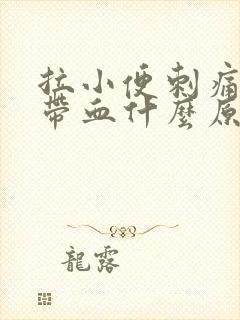 拉小便刺痛
帶血什麼原
龍露